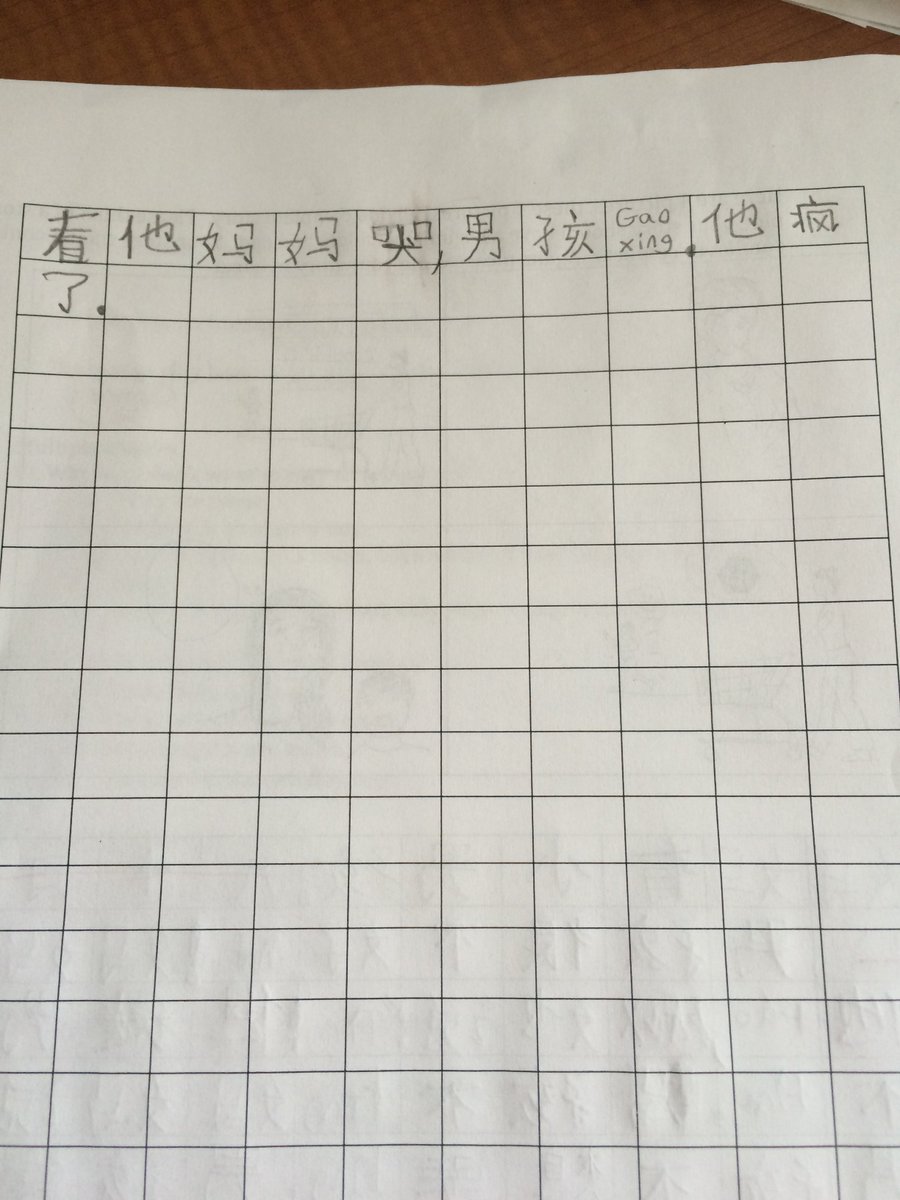 看他妈妈哭,男孩Gao xing.他疯
了.